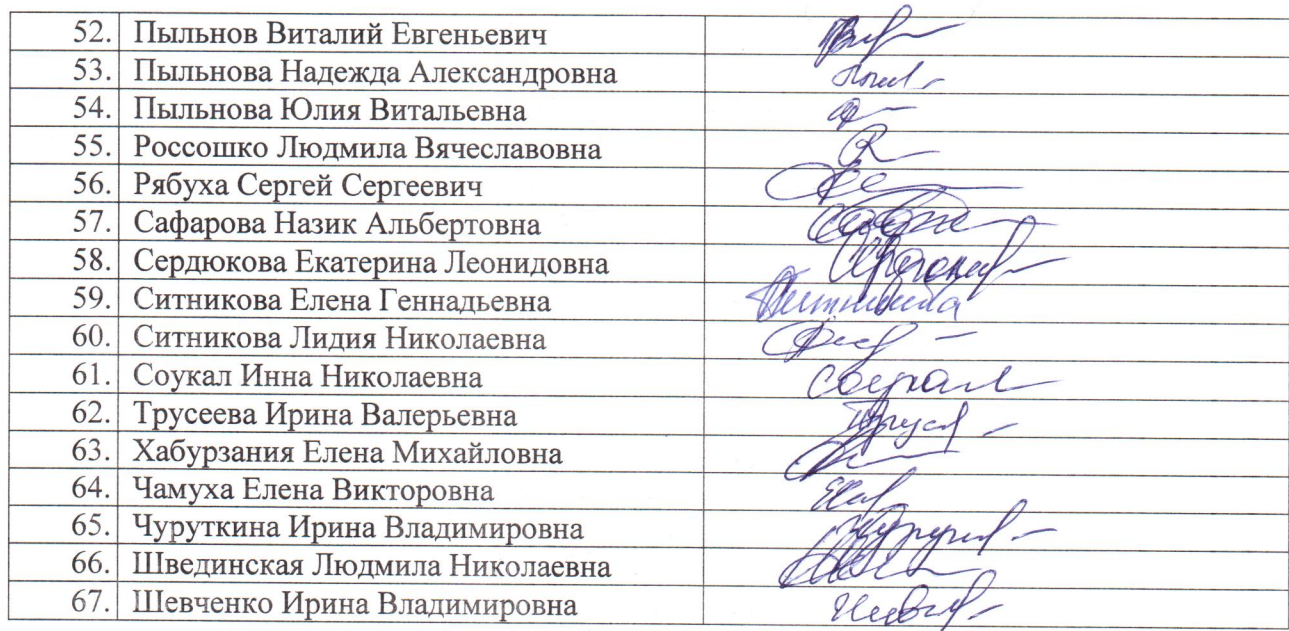 52. Пыльнов Виталий Евгеньевич
53. Пыльнова Надежда Александровна
54. Пыльнова Юлия Витальевна
55. Россошко Людмила Вячеславовна
56. Рябуха Сергей Сергеевич
57. Сафарова Назик Альбертовна
58. Сердюкова Екатерина Леонидовна
59. Ситникова Елена Геннадьевна
60. Ситникова Лидия Николаевна
61. Соукал Инна Николаевна
62. Трусеева Ирина Валерьевна
63. Хабурзания Елена Михайловна
64. Чамуха Елена Викторовна
65. Чуруткина Ирина Владимировна
66. Швединская Людмила Николаевна
67. Шевченко Ирина Владимировна